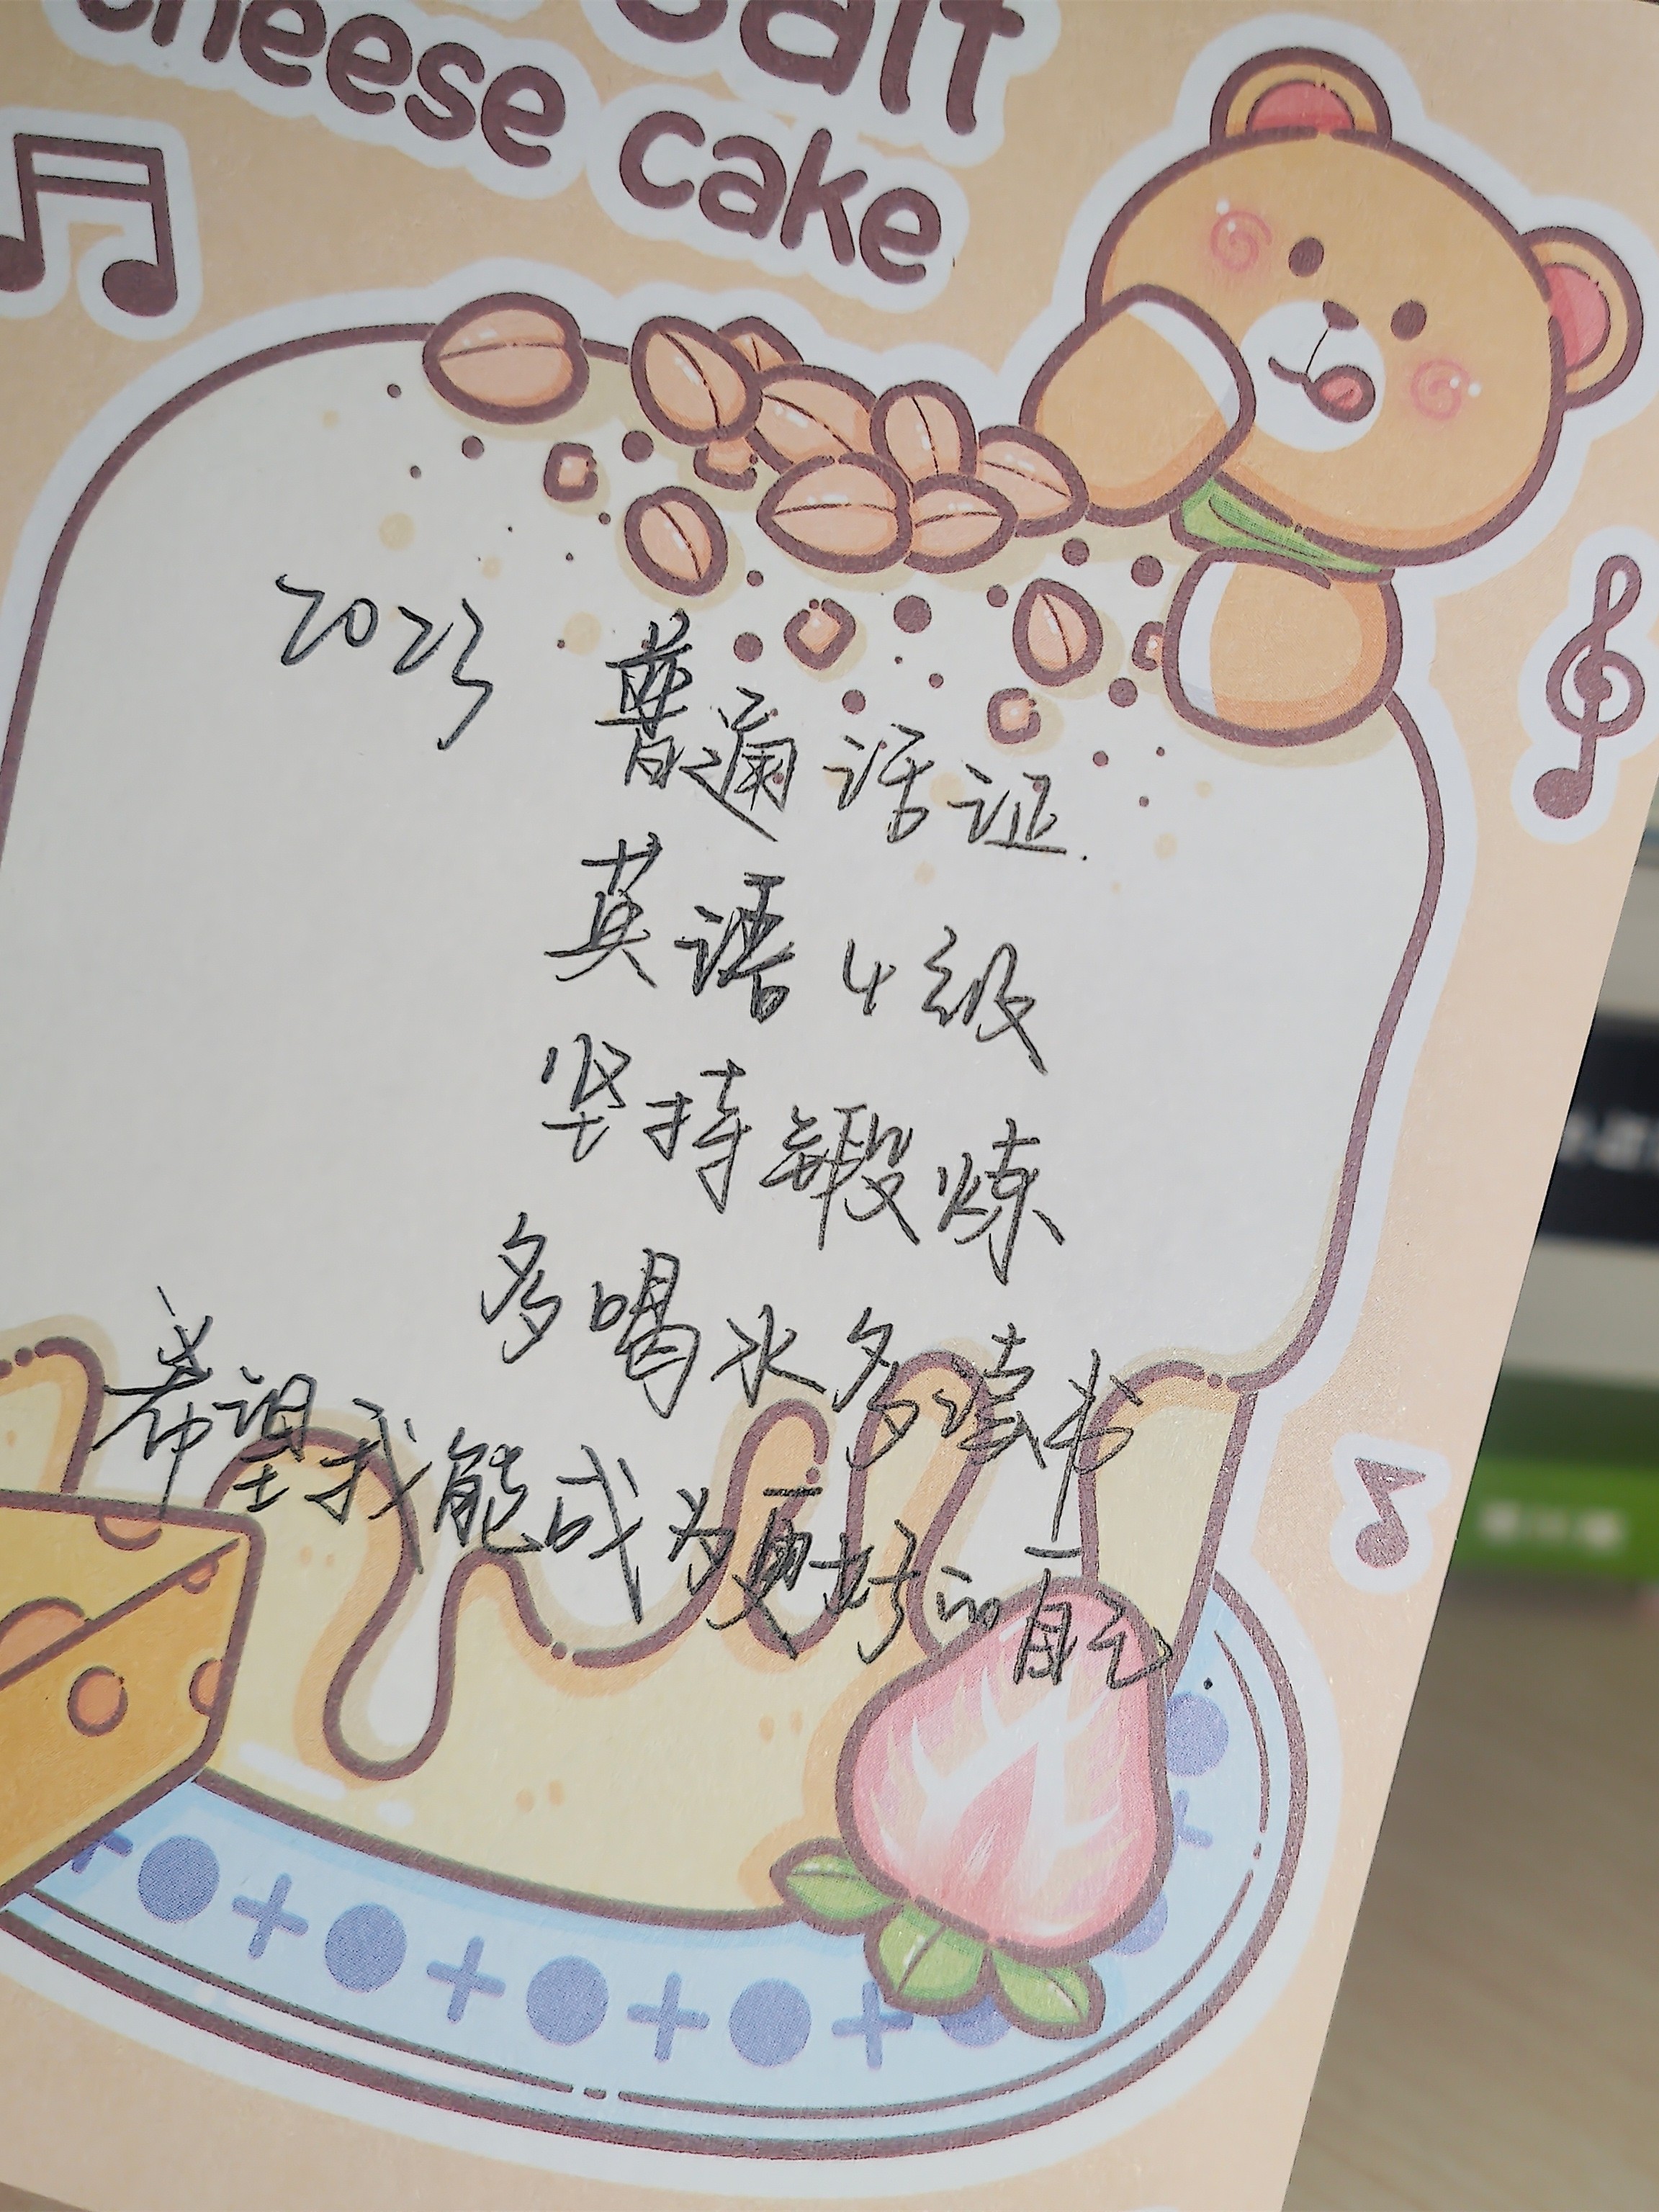 Salt
cheese cake
2023 普通话证.
英语4级
坚持锻炼
多喝水多读书
希望我能成为更好的自己.